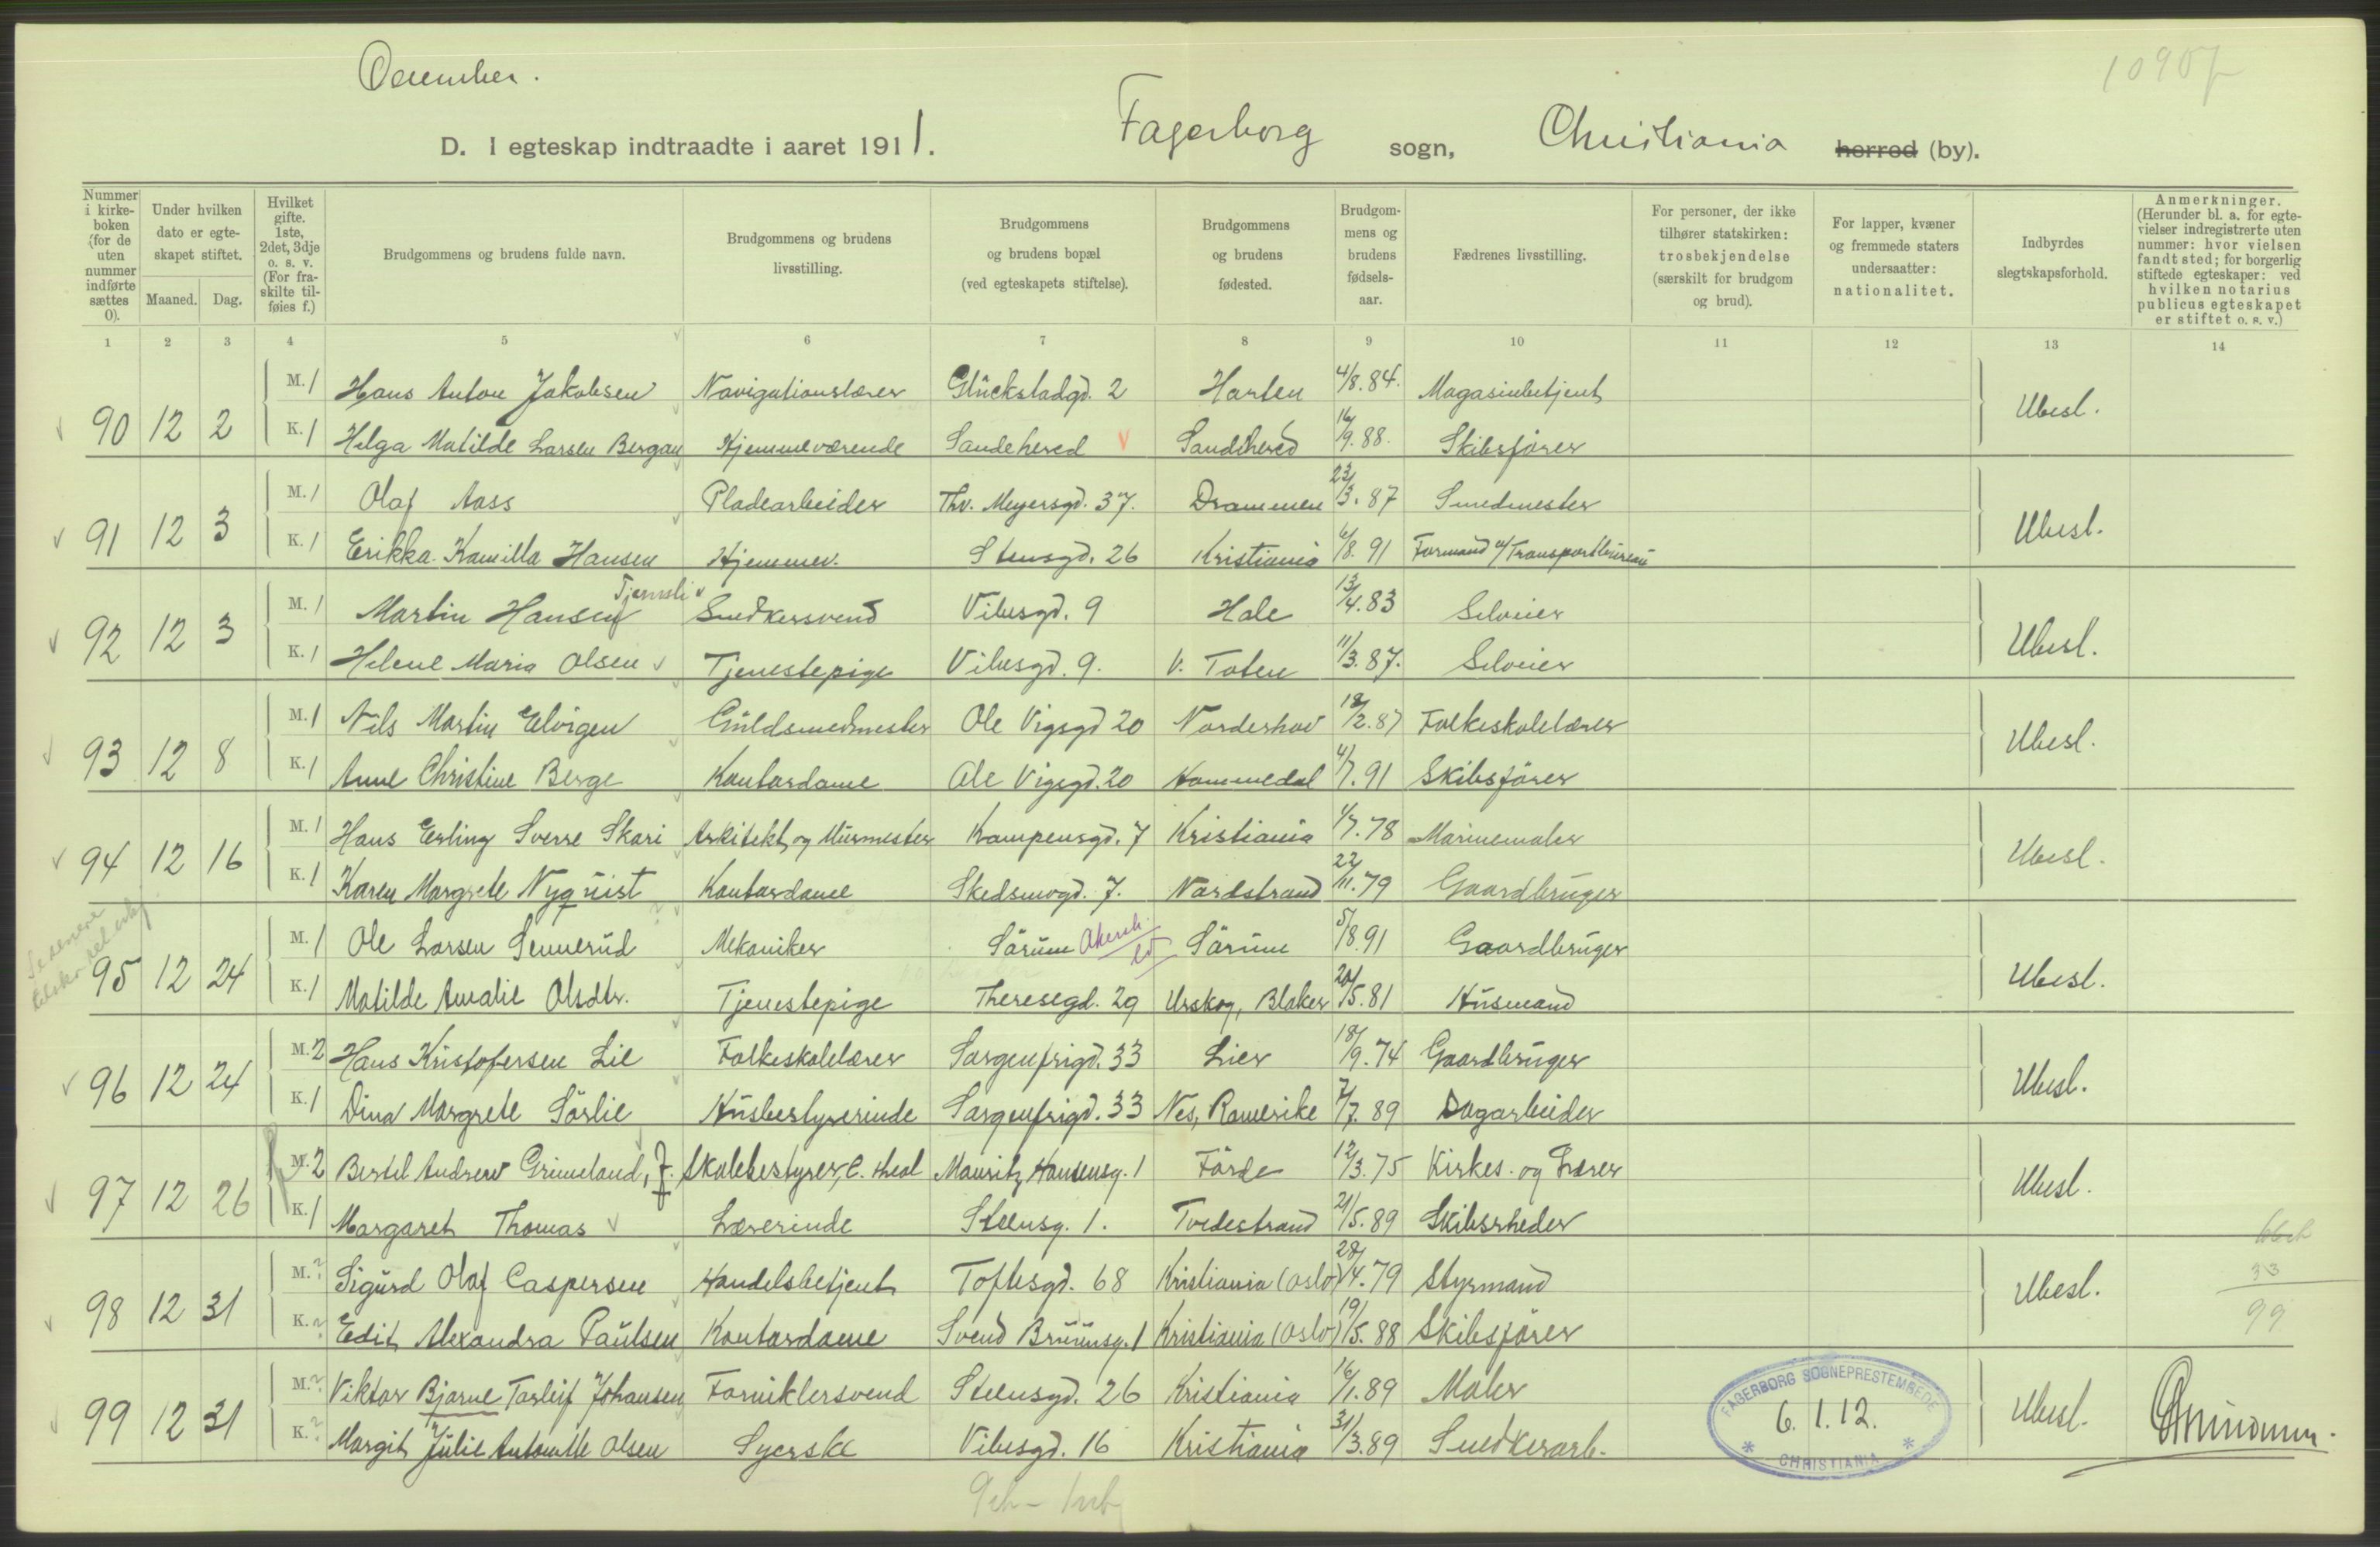 December.
D. I egteskap indtraadte i aaret 1911. Fagerborg sogn, Christiania herred (by).
Nummer i kirkeboken (for de uten nummer indførte sættes 0).
Under hvilken dato er egteskapet stiftet.
Maaned. Dag.
Hvilket gifte. 1ste, 2det, 3dje o. s. v. (For fraskilte tilføies f.)
Brudgommens og brudens fulde navn.
Brudgommens og brudens livsstilling.
Brudgommens og brudens bopæl (ved egteskapets stiftelse).
Brudgommens og brudens fødested.
Brudgommens og brudens fødselsaar.
Fædrenes livsstilling.
For personer, der ikke tilhører statskirken: trosbekjendelse (særskilt for brudgom og brud).
For lapper, kvæner og fremmede staters undersaatter: nationalitet.
Indbyrdes slegtskapsforhold.
Anmerkninger. (Herunder bl. a. for egtevielser indregistrerte uten nummer: hvor vielsen fandt sted; for borgerlig stiftede egteskaper: ved hvilken notarius publicus egteskapet er stiftet o. s. v.)
1 2 3 4 5 6 7 8 9 10 11 12 13 14
90 12 2 M. 1 Hans Anton Jakobsen Navigationslærer Glückstadgd. 2 Horten 4/8.84. Magasinbetjent Ubesl.
K. 1 Helga Matilde Larsen Bergan Hjemmeværende Sandehered Sandehered 16/9.88. Skibsfører
91 12 3 M. 1 Olaf Aass Pladearbeider Thv. Meyersgd. 37. Drammen 23/3.87 Smedmester Ubesl.
K. 1 Erikka Kamilla Hansen Hjemmev. Stensgd. 26 Kristiania 6/8.91 Formand v/Transportbureau
92 12 3 M. 1 Martin Hansen Tjernsli Snedkersvend Vibesgd. 9 Hole 13/4.83 Selveier Ubesl.
K. 1 Helene Maria Olsen Tjenestepige Vibesgd. 9. V. Toten 11/3.87. Selveier
93 12 8 M. 1 Nils Martin Elvigen Guldsmedmester Ole Vigsgd 20 Norderhov 18/2.87 Folkeskolelærer Ubesl.
K. 1 Anne Christine Berge Kontordame Ole Vigsgd. 20 Hommedal 4/7.91 Skibsfører
94 12 16 M. 1 Hans Erling Sverre Skari Arkitekt og Murmester Kampensgd. 7 Kristiania 1/7.78 Marinemaler Ubesl.
K. 1 Karen Margrete Nyquist Kontordame Skedsmogd. 7. Nordstrand 22/11.79 Gaardbruger
95 12 24 M. 1 Ole Larsen Sennerud Mekaniker Sörum Akersh. Sörum 5/8.91 Gaardbruger Ubesl.
K. 1 Matilde Amalie Olsdtr. Tjenestepige Theresegd. 29 Urskog, Blaker 20/5.81 Husmand
96 12 24 M. 2 Hans Kristofersen Lie Folkeskolelærer Sorgenfrigd. 33 Lier 18/9.74 Gaardbruger Ubesl.
K. 1 Dina Margrete Sörlie Husbestyrerinde Sorgenfrigd. 33 Nes, Romerike 7/7.89 Dagarbeider
97 12 26 M. 2 Bertel Andrew Grimeland, f. Skolebestyrer, C. theol Mauritz Hansensg. 1 Förde 12/3.75 Kirkes. og Lærer Ubesl.
K. 1 Margaret Thomas Lærerinde Steensg. 1. Tvedestrand 21/5.89 Skibsrheder
98 12 31 M. ? Sigurd Olaf Caspersen Handelsbetjent Toftesgd. 68 Kristiania (Oslo) 28/4.79 Styrmand Ubesl.
K. ? Edit Alexandra Paulsen Kontordame Svend Bruunsg. 1 Kristiania (Oslo) 19/5.88 Skibsfører
33
99
99 12 31 M. ? Viktor Bjarne Torleif Johansen Forniklersvend Steensgd. 26 Kristiania 16/1.89 Maler Ubesl.
K. ? Margit Julie Antonette Olsen Syerske Vibesgd. 16 Kristiania 31/3.89 Snedkerarb.
FAGERBORG SOGNEPRESTEMBEDE
6.1.12.
* CHRISTIANIA *